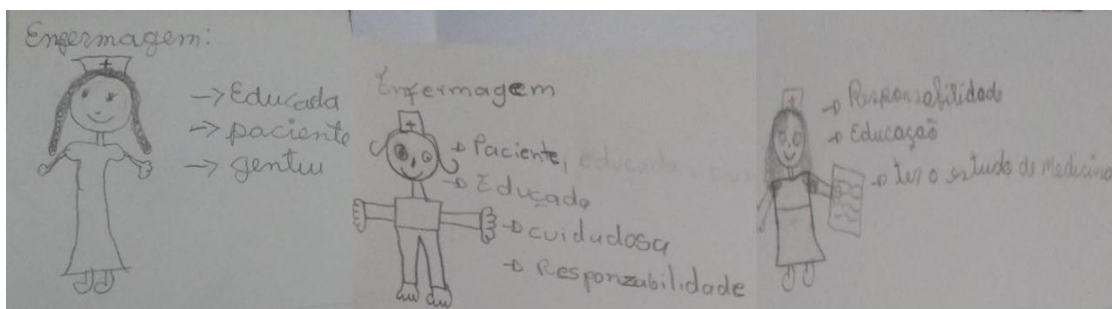 Enfermagem:
→ Educada
→ paciente
→ gentiu
Enfermagem
→ Paciente, educada,
→ Educado
→ cuidadosa
→ Responzabilidade
→ Responsabilidade
→ Educação
→ ter o estudo de medicina